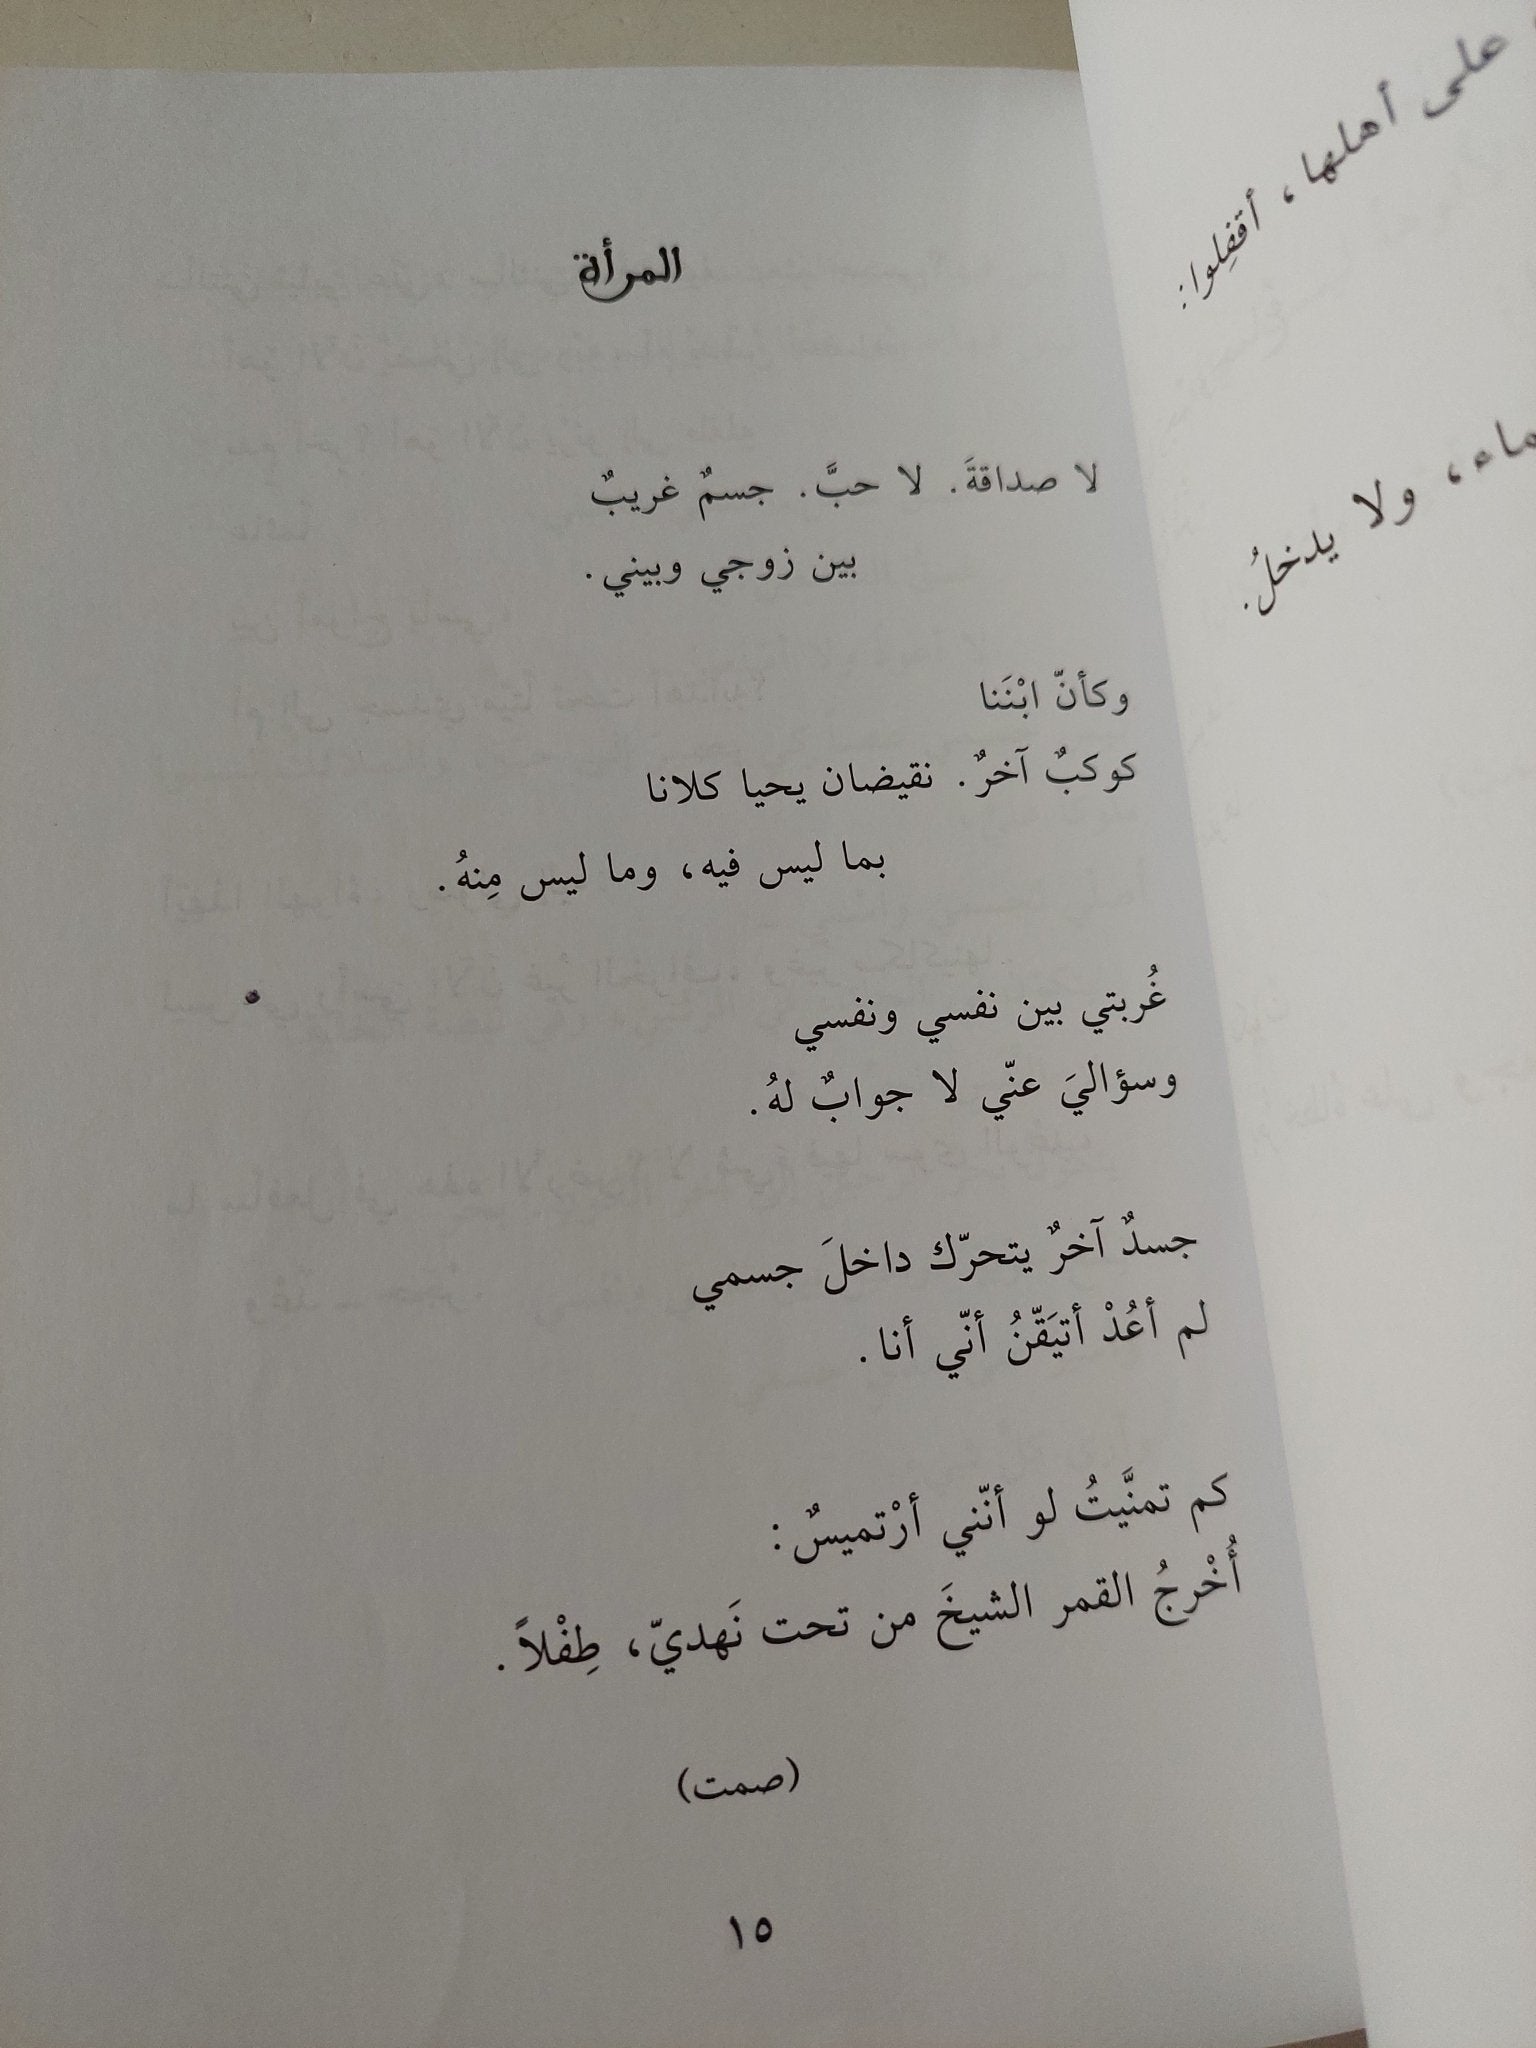 على أهلها، أقفِلوا:
ولا يدخلُ.
المرأة
لا صداقةَ. لا حبَّ. جسمٌ غريبٌ
بين زوجي وبيني.
وكأنّ ابْنَنا
كوكبٌ آخرٌ. نقيضان يحيا كلانا
بما ليس فيه، وما ليس مِنهُ.
غُربتي بين نفسي ونفسي
وسؤاليَ عنّي لا جوابٌ لهُ.
جسدٌ آخرٌ يتحرّك داخلَ جسمي
لم أعُدْ أتيَقّنُ أنّي أنا.
كم تمنَّيتُ لو أنّني أرْتميسٌ:
أُخْرجُ القمر الشيخَ من تحت نَهديّ، طِفْلاً.
(صمت)
١٥